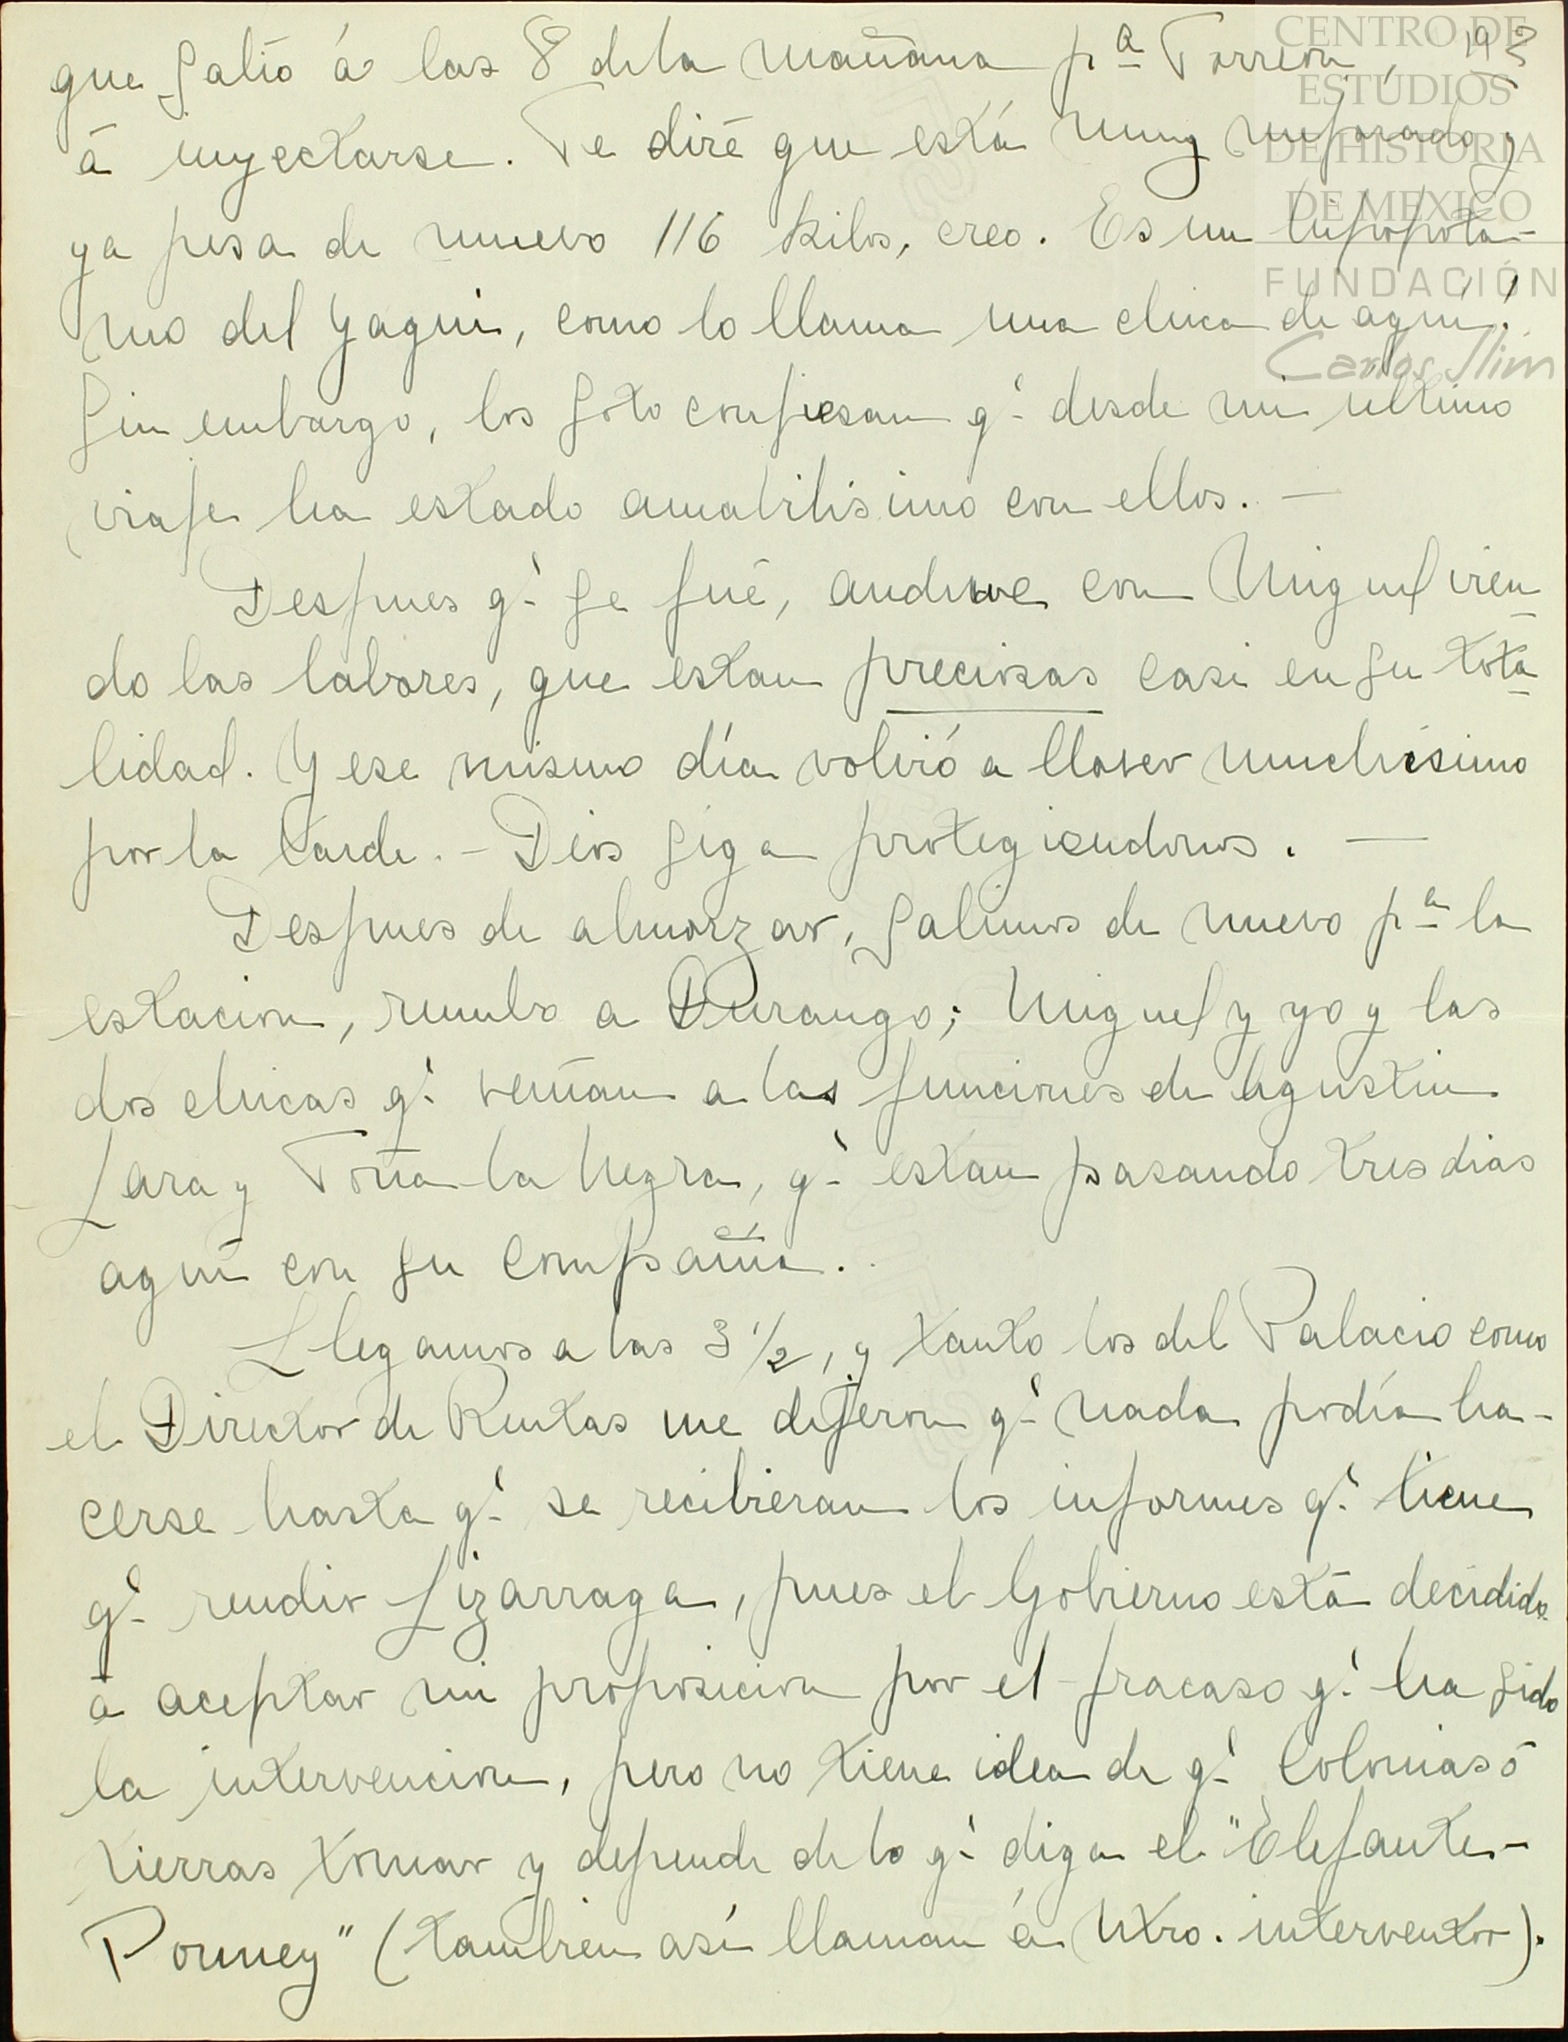 que salió á las 8 de la mañana pª Torreón,
á inyectarse. Te diré que está muy mejorado y
ya pesa de nuevo 116 kilos, creo. Es un hipopóta-
mo del Yaqui, como lo llama una chica de aquí!
Sin embargo, los Soto confiesan q' desde mi último
viaje ha estado amabilísimo con ellos. —
Despues q' se fué, anduve con Miguel vien-
do las labores, que estan preciosas casi en su tota-
lidad. Y ese mismo día volvió a llover muchísimo
por la tarde. – Dios siga protegiendonos. —
Despues de almorzar, salimos de nuevo pª la
estacion, rumbo a Durango; Miguel y yo y las
dos chicas q' venían a las funciones de Agustin
Lara y Toña la Negra, q' estan pasando tres dias
aquí con su compañía.
Llegamos a las 3 ½, y tanto los del Palacio como
el Director de Rentas me dijeron q' nada podía ha-
cerse hasta q' se recibieran los informes q' tiene
q' rendir Lizarraga, pues el Gobierno está decidido
á aceptar mi proposicion por el fracaso q' ha sido
la intervencion, pero no tiene idea de q' Colonias ó
tierras tomar y depende de lo q' diga el "Elefante-
Pouney" (tambien así llaman á Ntro. interventor).
CENTRO DE
ESTUDIOS
DE HISTORIA
DE MEXICO
FUNDACIÓN
Carlos Slim